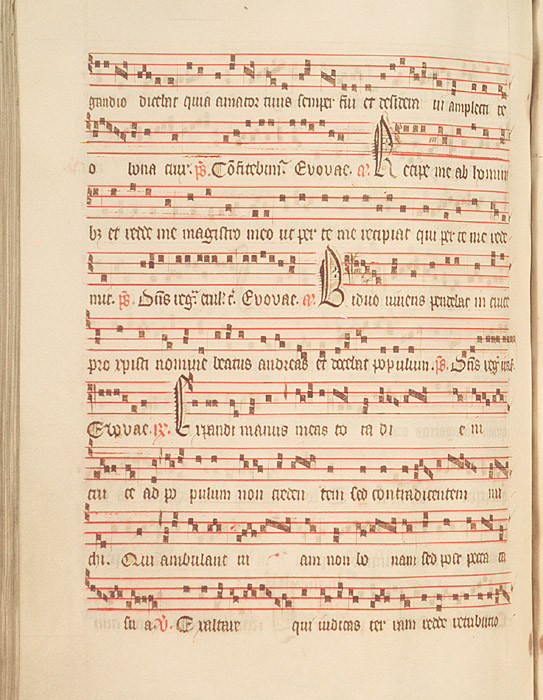 gaudio dicebat quia amator tuus semper fui et desidera ui amplecti te
o bona crux. ps. Confitebim̄. Evovae. a. Recipe me ab homini
bz et redde me magistro meo ut per te me recipiat qui per te me rede
mit. ps. Evovae. a. Biduo vivens pendebat in cruce
pro xpisti nomine beatus andreas et docebat populum. ps.
Evovae. R. Expandi manus meas to ta di e ni
cru ce ad po pulum non creden tem sed contradicentem mi
chi. Qui ambulant ui am non bo nam sed post pecca ta
su a. V. Exaltare qui iudicas ter ram redde retributio